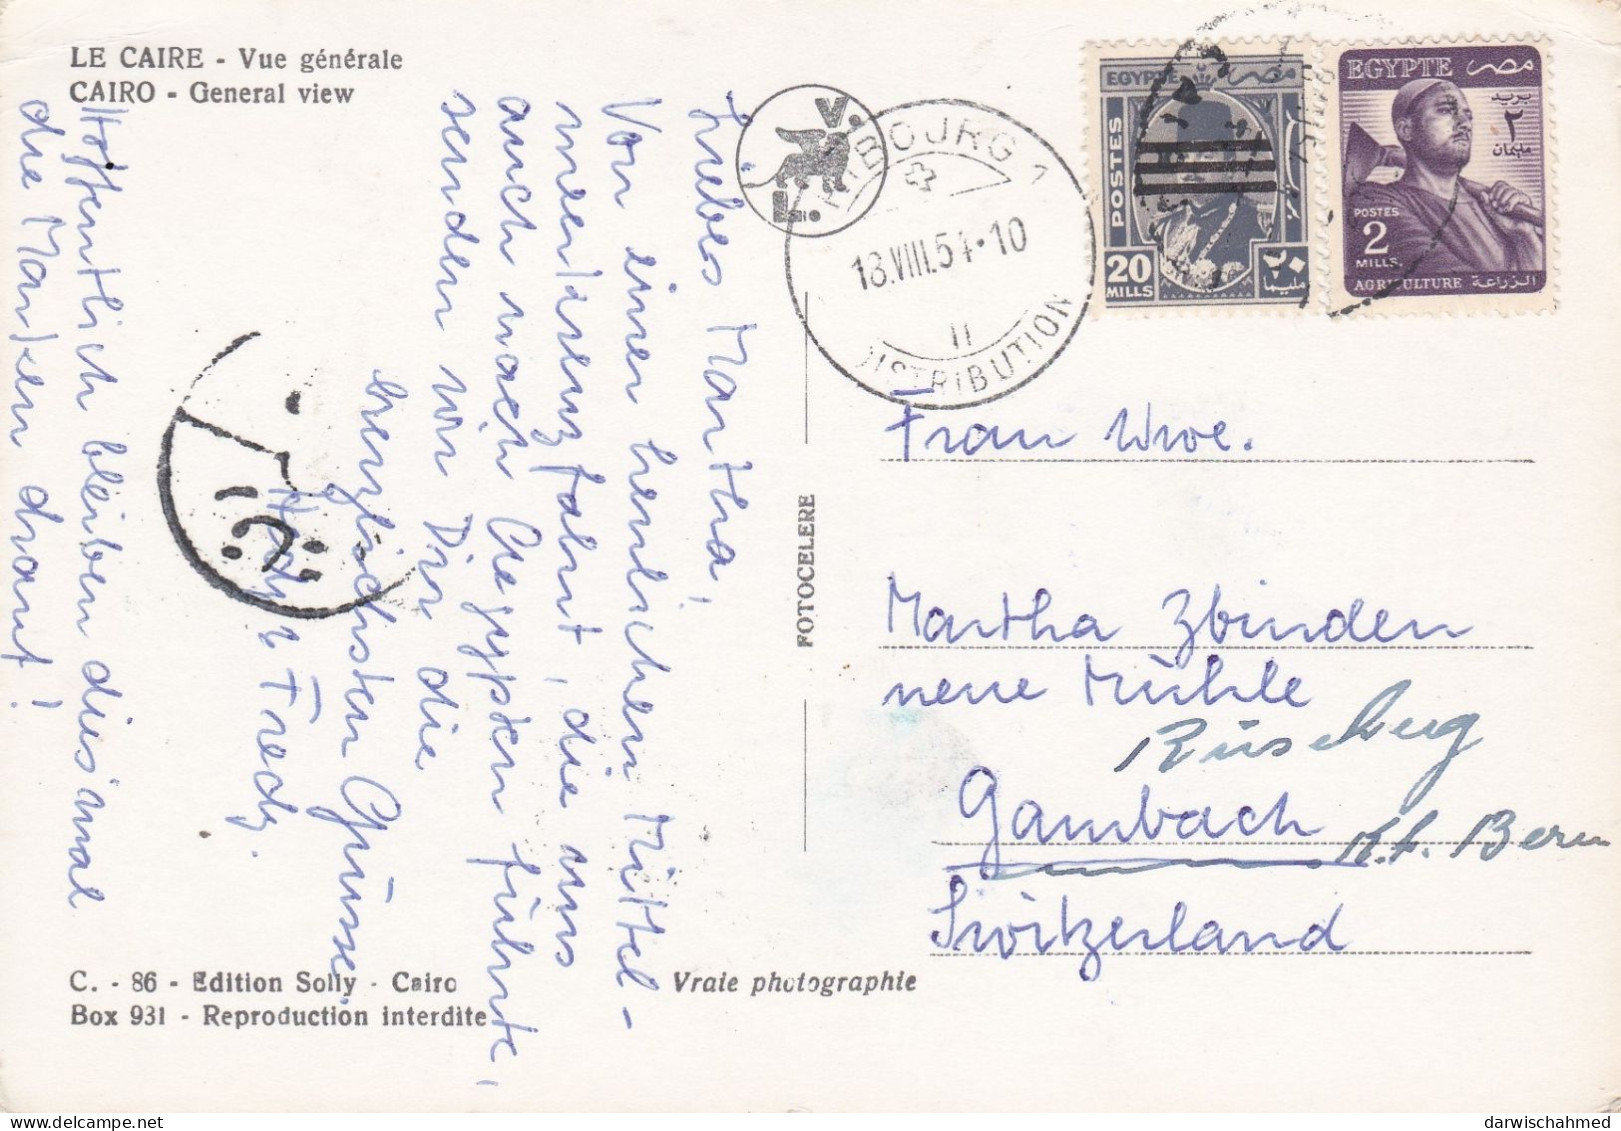 LE CAIRE - Vue générale
CAIRO - General view
Liebes Martha,
Von einer herrlichen Mittel-
meerkreuzfahrt, die uns
auch nach Aegypten führte,
senden wir Dir die
herzlichsten Grüsse
Hedy & Fredy.
Hoffentlich bleiben diesmal
die Marken drant!
V.
L.
FRIBOURG 1
18.VIII.54-10
II
DISTRIBUTION
EGYPTE مصر
POSTES
20
MILLS
٢٠
مليما
EGYPTE مصر
بريد
٢
مليمان
POSTES
2
MILLS
AGRICULTURE الزراعة
FOTOCELERE
Frau Wwe.
Martha Zbinden
neue Mühle
Rüschegg
Gambach Kt. Bern
Switzerland
C. - 86 - Edition Solly - Cairo
Box 931 - Reproduction interdite
Vraie photographie
darwischahmed